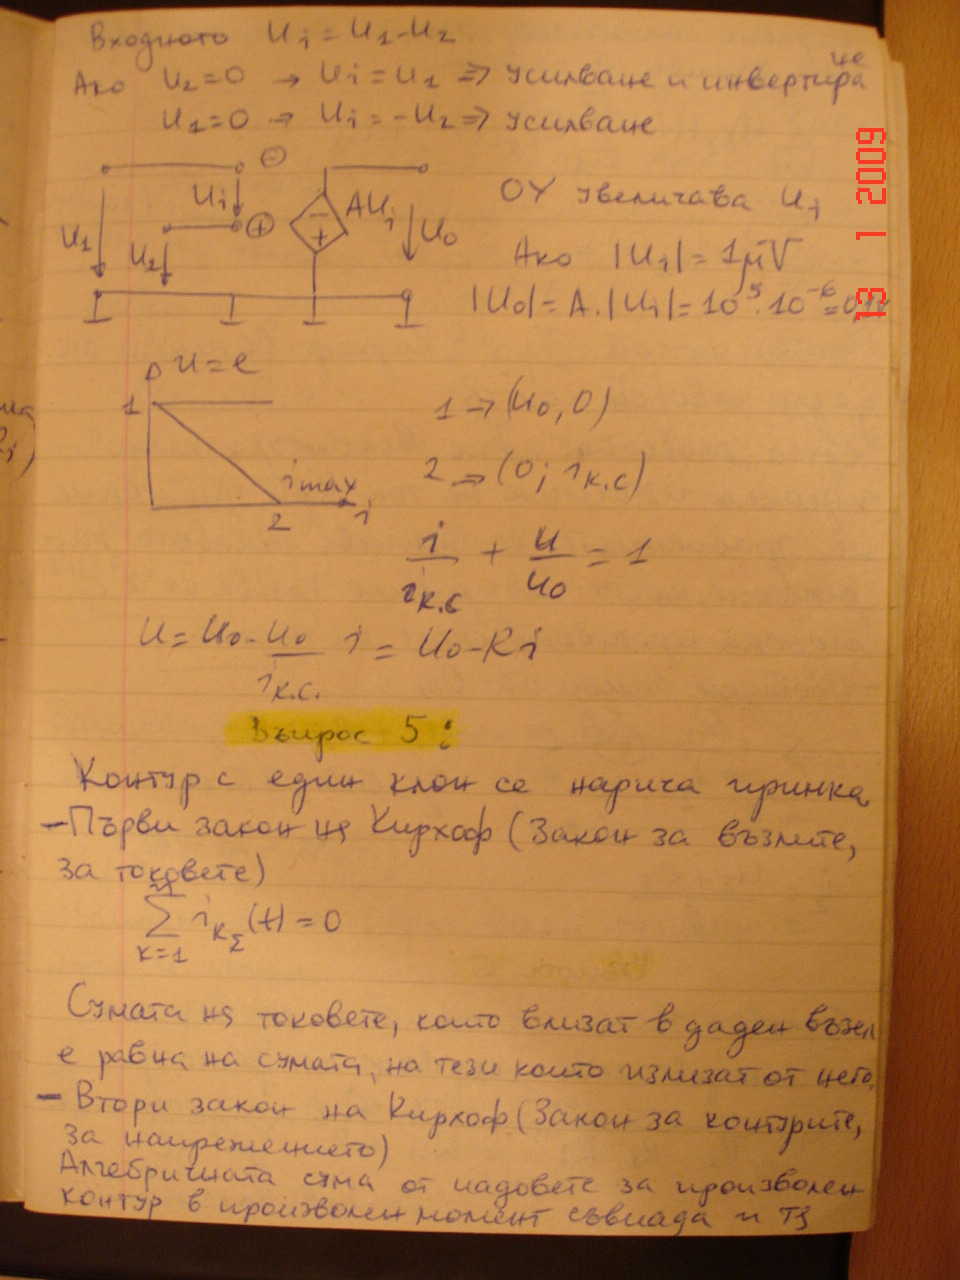 Входното Ui = U1-U2
Ако U2=0 → Ui = U1 => усилване и инвертира
не
U1=0 → Ui = -U2 => усилване
⊖
Ui
⊕
AUi
U1
U2
U0
− +
ОУ увеличава Ui
Ако |Ui| = 1μV
|U0| = A.|Ui| = 10^5.10^-6 = 0,1V
u = e
1
imax
i
2
1 → (U0, 0)
2 → (0; iк.с)
i/iк.с + U/U0 = 1
U = U0 - U0/iк.с. i = U0 - Ri
Въпрос 5:
Контур с един клон се нарича примка
- Първи закон на Кирхоф (Закон за възлите,
за токовете)
n
∑ iкΣ(t) = 0
к=1
Сумата на токовете, които влизат в даден възел
е равна на сумата, на тези които излизат от него.
- Втори закон на Кирхоф (Закон за контурите,
за напрежението)
Алгебричната сума от падовете за произволен
контур в произволен момент съвпада и тя
13 1 2009